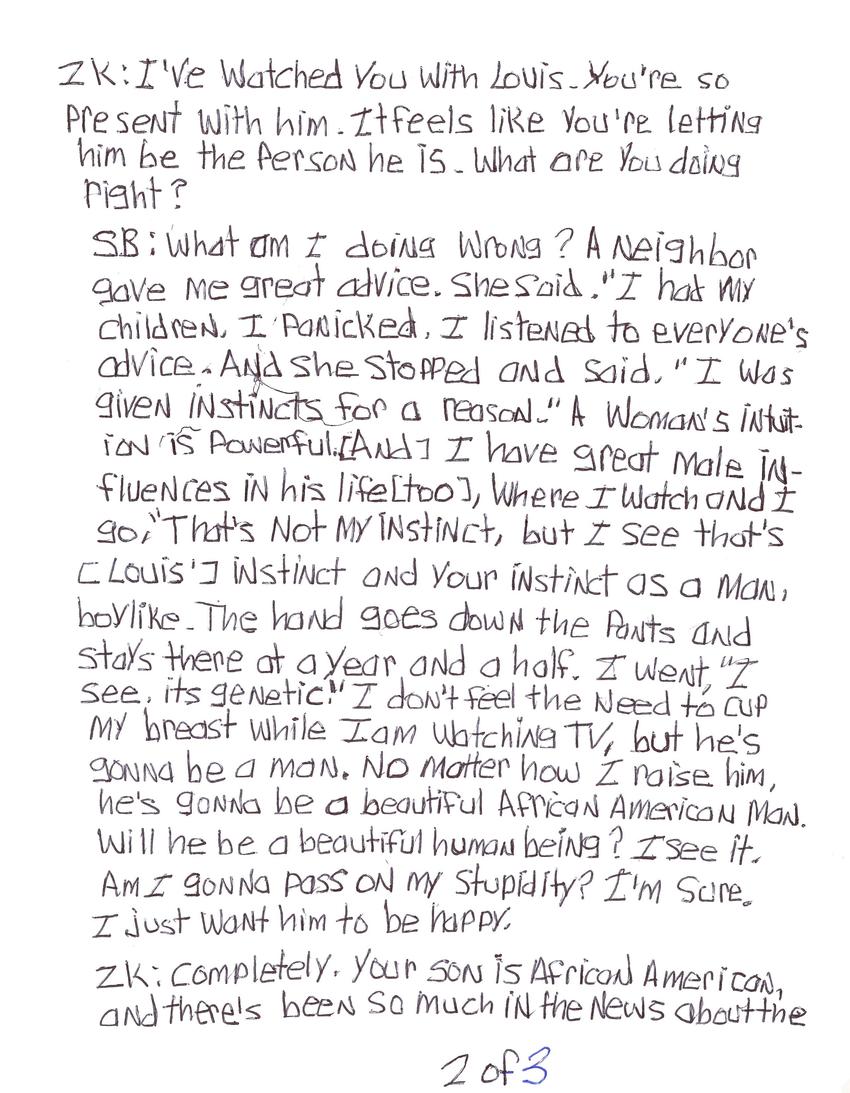 ZK: I've Watched You With Louis. You're so
Present With him. It feels like You're letting
him be the Person he is. What are You doing
Right?
SB: What am I doing Wrong? A Neighbor
gave Me great advice. She said. "I had My
children. I Panicked. I listened to everyone's
advice. And she stopped and said. "I Was
given instincts for a reason." A Woman's intuit-
ion is Powerful. [And] I have great Male in-
fluences in his life [too], Where I Watch and I
go, "That's Not My instinct, but I see that's
[Louis'] instinct and Your instinct as a Man,
boylike. The hand goes down the Pants and
stays there at a year and a half. I went, "I
see, its genetic." I don't feel the Need to cup
My breast while I am Watching TV, but he's
gonna be a man. No Matter how I raise him,
he's gonna be a beautiful African American Man.
Will he be a beautiful human being? I see it.
Am I gonna pass on my stupidity? I'm Sure.
I just Want him to be happy.
ZK: Completely. Your son is African American,
and there's been so much in the News about the
2 of 3